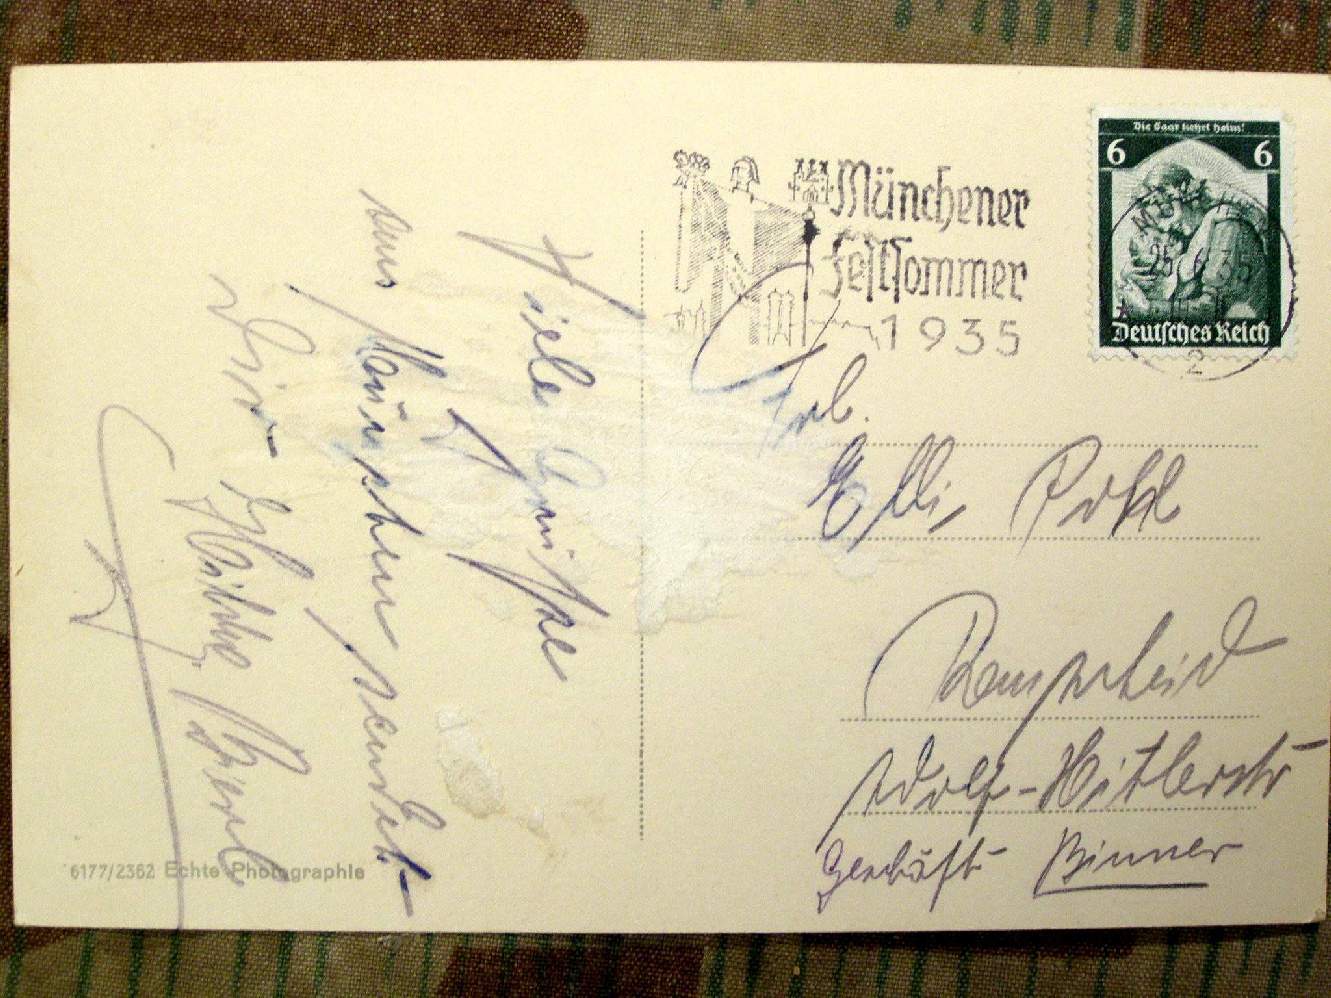 Die Saar kehrt heim!
6 6
Deutsches Reich
MÜNCHEN
25.6.35
2
Münchener
Festsommer
1935
Frl.
Elli Pohl
Remscheid
Adolf-Hitlerstr
Geschäft Binner
Viele Grüsse
aus München sendet
Dir
6177/2362 Echte Photographie